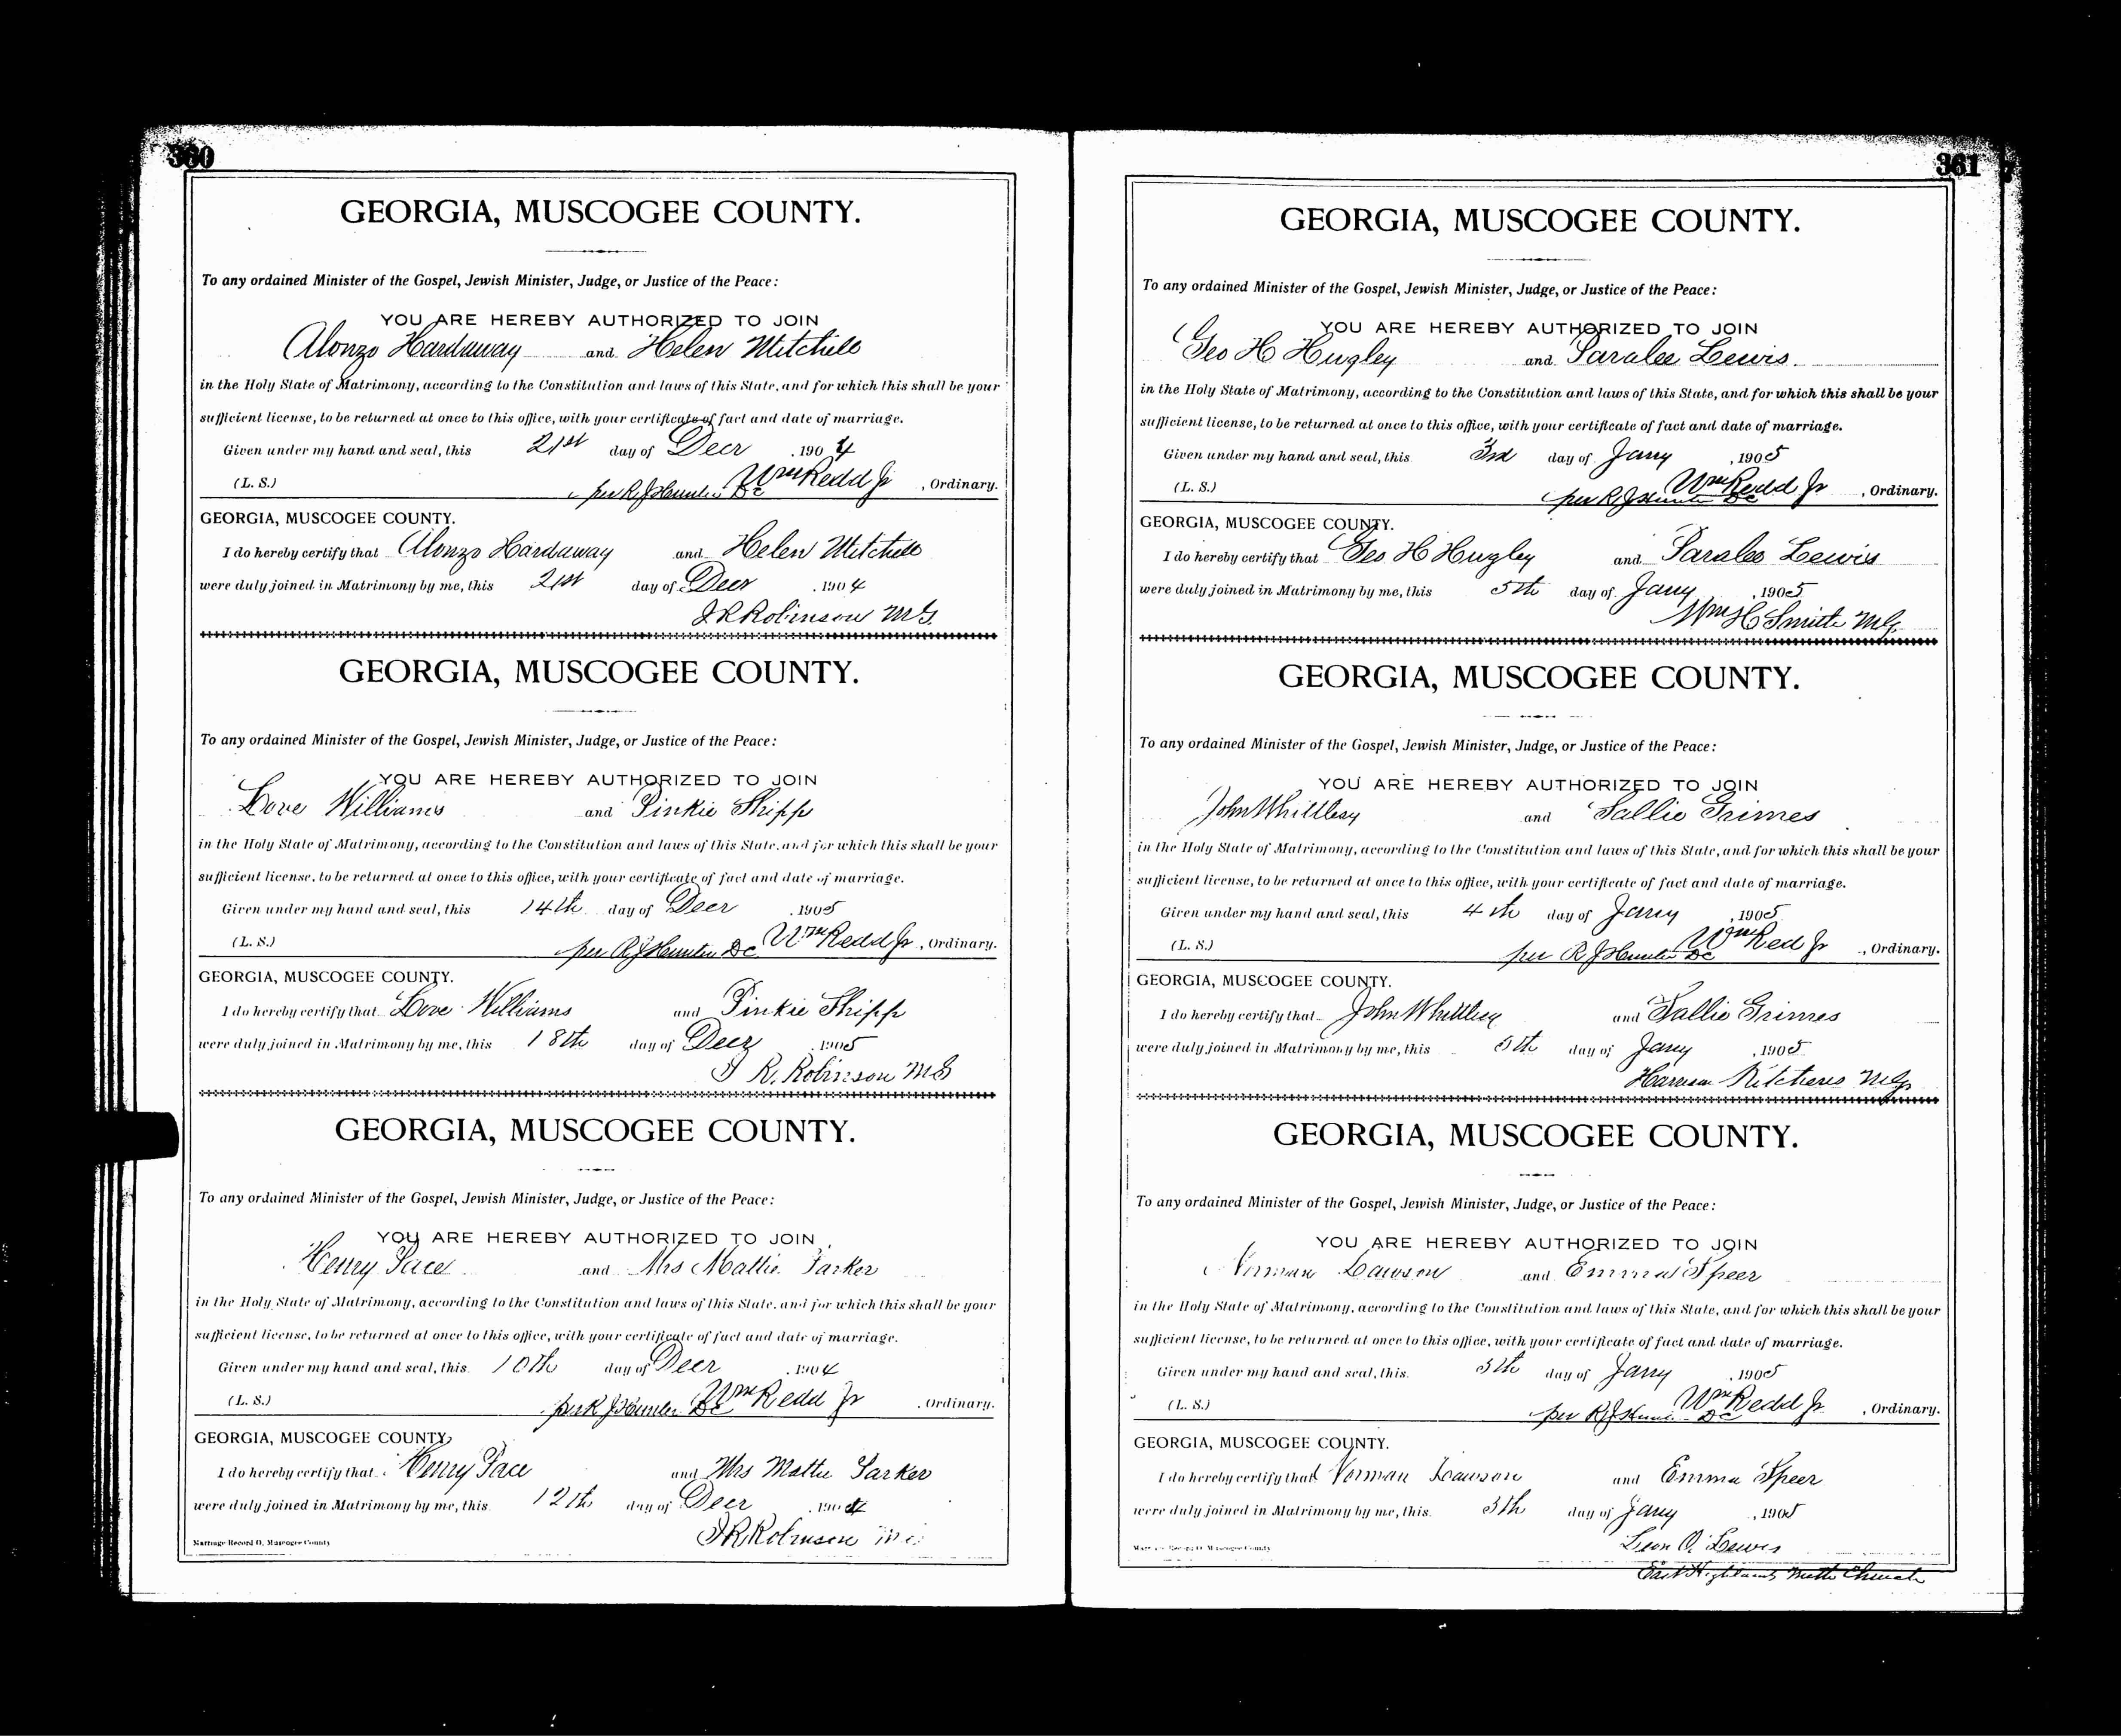 360
GEORGIA, MUSCOGEE COUNTY.
To any ordained Minister of the Gospel, Jewish Minister, Judge, or Justice of the Peace:
YOU ARE HEREBY AUTHORIZED TO JOIN
Alonzo Hardaway and Helen Mitchell
in the Holy State of Matrimony, according to the Constitution and laws of this State, and for which this shall be your
sufficient license, to be returned at once to this office, with your certificate of fact and date of marriage.
Given under my hand and seal, this 21st day of Decr , 1904
(L. S.) per R J Hunter DC Wm Redd Jr , Ordinary.
GEORGIA, MUSCOGEE COUNTY.
I do hereby certify that Alonzo Hardaway and Helen Mitchell
were duly joined in Matrimony by me, this 21st day of Decr , 1904
J R Robinson M G.
GEORGIA, MUSCOGEE COUNTY.
To any ordained Minister of the Gospel, Jewish Minister, Judge, or Justice of the Peace:
YOU ARE HEREBY AUTHORIZED TO JOIN
Love Williams and Pinkie Shipp
in the Holy State of Matrimony, according to the Constitution and laws of this State, and for which this shall be your
sufficient license, to be returned at once to this office, with your certificate of fact and date of marriage.
Given under my hand and seal, this 14th day of Decr , 1905
(L. S.) per R J Hunter DC Wm Redd Jr , Ordinary.
GEORGIA, MUSCOGEE COUNTY.
I do hereby certify that Love Williams and Pinkie Shipp
were duly joined in Matrimony by me, this 18th day of Decr , 1905
J R. Robinson M G
GEORGIA, MUSCOGEE COUNTY.
To any ordained Minister of the Gospel, Jewish Minister, Judge, or Justice of the Peace:
YOU ARE HEREBY AUTHORIZED TO JOIN
Henry Pace and Mrs Mattie Parker
in the Holy State of Matrimony, according to the Constitution and laws of this State, and for which this shall be your
sufficient license, to be returned at once to this office, with your certificate of fact and date of marriage.
Given under my hand and seal, this 10th day of Decr , 1904
(L. S.) per R J Hunter DC Wm Redd Jr , Ordinary.
GEORGIA, MUSCOGEE COUNTY,
I do hereby certify that Henry Pace and Mrs Mattie Parker
were duly joined in Matrimony by me, this 12th day of Decr , 1904
J R Robinson M G
Marriage Record O, Muscogee County
361
GEORGIA, MUSCOGEE COUNTY.
To any ordained Minister of the Gospel, Jewish Minister, Judge, or Justice of the Peace:
YOU ARE HEREBY AUTHORIZED TO JOIN
Geo H Hugley and Paralee Lewis
in the Holy State of Matrimony, according to the Constitution and laws of this State, and for which this shall be your
sufficient license, to be returned at once to this office, with your certificate of fact and date of marriage.
Given under my hand and seal, this 3rd day of Jany , 1905
(L. S.) per R J Hunter DC Wm Redd Jr , Ordinary.
GEORGIA, MUSCOGEE COUNTY.
I do hereby certify that Geo H Hugley and Paralee Lewis
were duly joined in Matrimony by me, this 5th day of Jany , 1905
Wm H Smith M G.
GEORGIA, MUSCOGEE COUNTY.
To any ordained Minister of the Gospel, Jewish Minister, Judge, or Justice of the Peace:
YOU ARE HEREBY AUTHORIZED TO JOIN
John Whittlesy and Sallie Grimes
in the Holy State of Matrimony, according to the Constitution and laws of this State, and for which this shall be your
sufficient license, to be returned at once to this office, with your certificate of fact and date of marriage.
Given under my hand and seal, this 4th day of Jany , 1905
(L. S.) per R J Hunter DC Wm Red Jr , Ordinary.
GEORGIA, MUSCOGEE COUNTY.
I do hereby certify that John Whittlesy and Sallie Grimes
were duly joined in Matrimony by me, this 5th day of Jany , 1905
Harrison M G
GEORGIA, MUSCOGEE COUNTY.
To any ordained Minister of the Gospel, Jewish Minister, Judge, or Justice of the Peace:
YOU ARE HEREBY AUTHORIZED TO JOIN
Norman Lawson and Emma Speer
in the Holy State of Matrimony, according to the Constitution and laws of this State, and for which this shall be your
sufficient license, to be returned at once to this office, with your certificate of fact and date of marriage.
Given under my hand and seal, this 5th day of Jany , 1905
(L. S.) per R J Hunter DC Wm Redd Jr , Ordinary.
GEORGIA, MUSCOGEE COUNTY.
I do hereby certify that Norman Lawson and Emma Speer
were duly joined in Matrimony by me, this 5th day of Jany , 1905
Leon O. Lewis
Marriage Record O, Muscogee County
East Highlands Meth Church